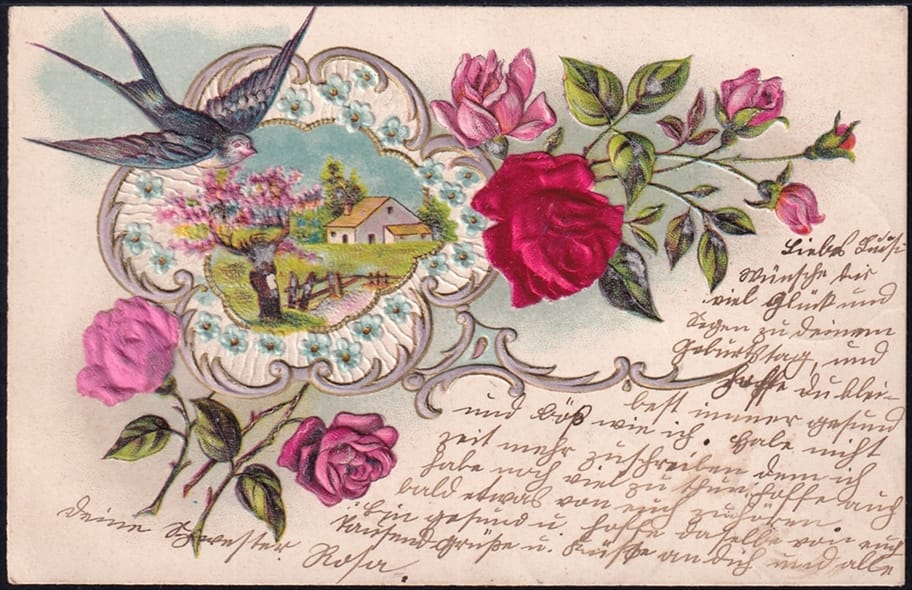 Liebes
Wünsche dir
viel Glück und
Segen zu deinem
Geburtstag, und
hoffe du blei-
best immer gesund
und böß wie ich. Habe nicht
zeit mehr zuschreiben denn ich
habe noch viel zu thun, hoffe auch
bald etwas von euch zuhören.
Bin gesund u. hoffe daselbe von euch
Tausend Grüße u. Küße an dich und alle
deine Schwester
Rosa.